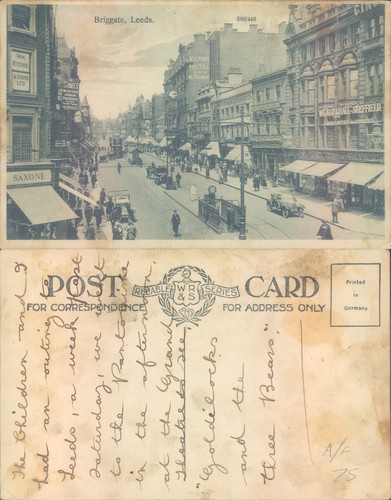 Briggate, Leeds.
SINGERS
WM
RITCHIE
& SONS
LTD
SAXONE
POST CARD
FOR CORRESPONDENCE
RELIABLE
WR
&S
SERIES
FOR ADDRESS ONLY
Printed
in
Germany
The Children and I
had an outing to
Leeds, a week last
Saturday, we went
to the Pantomime
in the afternoon
at the Grand
Theatre to see
"Goldilocks
and the
three Bears".
A/F
75